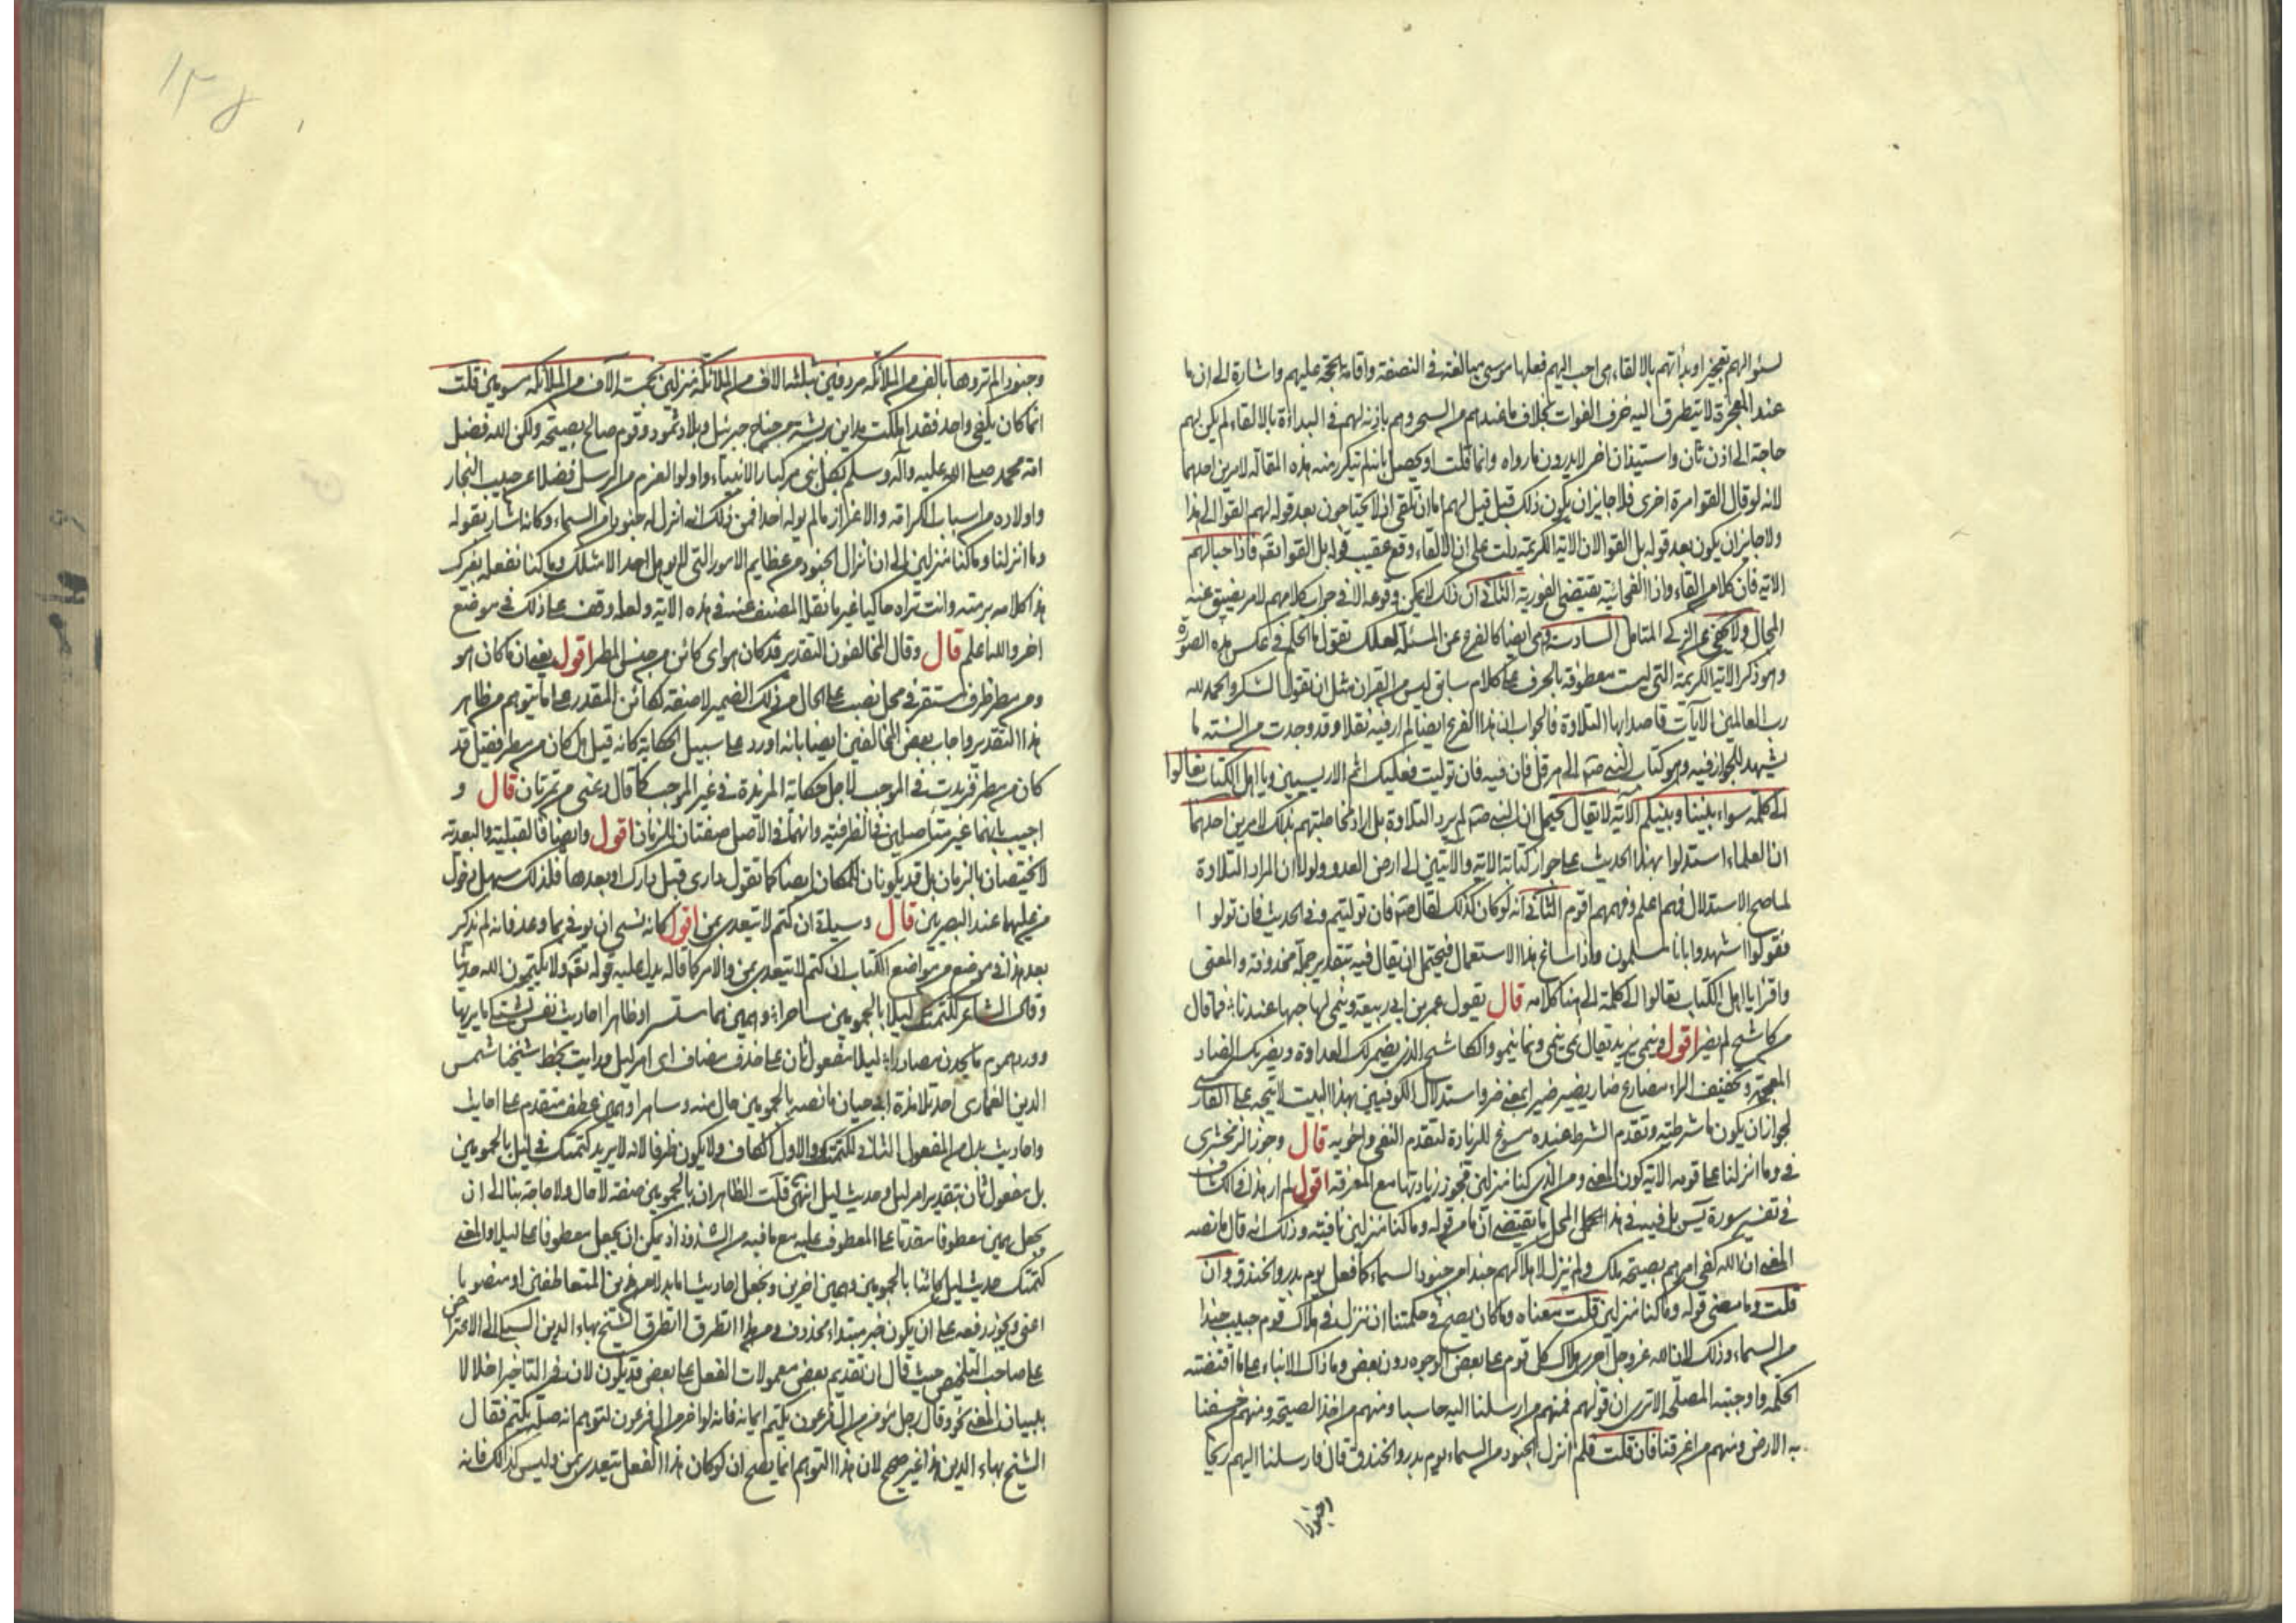 لسؤالهم تعجيزا وبدأتهم بالالقاء هي احب اليهم فعلها موسى مبالغة في النصفة واقامة للحجة عليهم واشارة الى ان ما
عنده المعجزة لا يتطرق اليه خوف الفوات بخلاف ما عندهم من السحر وهم باذنه لهم في البداءة بالالقاء لم يكن بهم
حاجة الى اذن ثان واستيذان اخر لا يدرون ما رواه وانما قلت او يحصل بانه لم يتكرر منه هذه المقالة لامرين احدهما
لانه لو قال القوا مرة اخرى فلا جايز ان يكون ذلك قبل قيل لهم اما ان تلقى لا يحتاجون بعد قوله لهم القوا الى هذا
ولا جايز ان يكون بعد قوله بل القوا لان الاية الكريمة دلت على ان الالقاء وقع عقيب قوله بل القوا بقوله فاذا حبالهم
الاية فان كلا من الفاء واذا الفجائية يقتضي الفورية الثاني ان ذلك لا يمكن وقوعه الا في جواب كلامهم للامر يضيق عنه
المجال ولا يخفى على الذكي المتامل السادسة وهي ايضا كالفرع عن المسئلة لعلك تقول ما الحكم في عكس هذه الصورة
وهو ذكر الاية الكريمة التي ليست معطوفة بالحرف على كلام سابق ليس من القران مثل ان تقول الشكر والحمد لله
رب العالمين الايات قاصدا بها التلاوة فالجواب ان هذا الفرع ايضا لم ار فيه نقلا وقد وجدت من السنة ما
يشهد للجواز فيه وهو كتاب النبي صم الى هرقل فان فيه فان توليت فعليك اثم الاريسيين ويا اهل الكتاب تعالوا
الى كلمة سواء بيننا وبينكم الاية لا يقال يحتمل ان النبي صم لم يرد التلاوة بل اراد مخاطبتهم بذلك لامرين احدهما
ان العلماء استدلوا بهذا الحديث على جواز كتابة الاية والايتين الى ارض العدو ولولا ان المراد التلاوة
لما صح الاستدلال فهم اعلم وفهمهم اقوم الثاني انه لو كان كذلك لقال صم فان توليتم وفي الحديث فان تولوا
فقولوا اشهدوا بانا مسلمون واذا ساغ هذا الاستعمال فيحتمل ان يقال فيه بتقدير جملة محذوفة والمعنى
واقرا يا اهل الكتاب تعالوا الى كلمة الى هنا كلامه قال يقول عمر بن ابي ربيعة وينمي لها حبها عندنا فما قال
من كاشح لم يضر اقول ينمي يزيد يقال نمى ينمي ونما ينمو والكاشح الذي يضمر لك العداوة ويضر بكسر الضاد
المعجمة وتخفيف الراء مضارع ضار يضير ضيرا بمعنى ضر واستدلال الكوفيين بهذا البيت لا يتجه على الفارسي
لجواز ان يكون ما شرطية وتقدم الشرط عنده مسوغ للزيادة لتقدم النفي واخويه قال وجوز الزمخشري
في وما انزلنا على قومه الاية كون المعنى ومن الذي كنا منزلين فجوز زيادتها مع المعرفة اقول لم ار هذا في الكشاف
في تفسير سورة يس بل فيه في هذا المحل ما يقتضي ان ما من قوله وما كنا منزلين نافية وذلك انه قال ما نصه
المعنى ان الله كفى امرهم بصيحة ملك ولم ينزل لاهلاكهم جندا من جنود السماء كما فعل يوم بدر والخندق وان
قلت وما معنى قوله وما كنا منزلين قلت معناه وما كان يصح في حكمتنا ان ننزل في هلاك قوم حبيب جندا
من السماء وذلك لان الله عز وجل اجرى هلاك كل قوم على بعض الوجوه دون بعض وما ذاك الا بناء على ما اقتضته
الحكمة واوجبته المصلحة الا ترى ان قولهم فمنهم من ارسلنا اليه حاصبا ومنهم من اخذته الصيحة ومنهم من خسفنا
به الارض ومنهم من اغرقنا فان قلت فلم انزل الجنود من السماء يوم بدر والخندق قال فارسلنا اليهم ريحا
وجنودا لم تروها بالف من الملائكة مردفين بثلثة الاف من الملائكة منزلين بخمسة الاف من الملائكة مسومين قلت
انما كان يكفي واحد فقد اهلكت مداين بريشة من جناح جبرئيل وبلاد ثمود وقوم صالح بصيحة ولكن الله فضل
امة محمد صلى الله عليه وآله وسلم بكل شي من كبار الانبياء واولو العزم من الرسل فضلا عن حبيب النجار
واولاده من اسباب الكرامة والاعزاز ما لم يوله احدا فمن ذلك انه انزل له جنودا من السماء وكانه اشار بقوله
وما انزلنا وما كنا منزلين الى ان انزال الجنود من عظايم الامور التي لا يوهل لها احد الا مثلك وما كنا نفعله بغيرك
هذا كلامه برمته وانت تراه حاكيا غير ما نقل المصنف عنه في هذه الاية ولعله وقف على ذلك في موضع
اخر والله اعلم قال وقال المخالفون التقدير قد كان هو اي كائن من جنس المطر اقول يعني ان كان هو
ومن مطر ظرف مستقر في محل نصب على الحال من ذلك الضمير لا صفة لكائن المقدر على ما يتوهم من ظاهر
هذا التقدير واجاب بعض المخالفين ايضا بانه اورد على سبيل الحكاية كانه قيل هل كان من مطر فقيل قد
كان من مطر فزيدت في الموجب لاجل حكاية المزيدة في غير الموجب كما قال دعني من تمرتان قال و
اجيب بانهما غير متاصلين في الظرفية وانهما في الاصل صفتان للزمان اقول وايضا فالقبلية والبعدية
لا تختصان بالزمان بل قد يكونان للمكان ايضا كما تقول داري قبل دارك او بعدها فلذلك سهل دخول
من عليهما عند البصريين قال وسيلة ان كتم لا يتعدى بمن اقول كانه نسي ان يوفي بما وعد فانه لم يذكر
بعد هذا في موضع من مواضع الكتاب ان كتم لا يتعدى بمن والامر كما قاله يدل عليه قوله تعم ولا يكتمون الله حديثا
وقال الشاعر كتمتك ليلا بالجمومين ساهرا وهمين هما مستسرا وظاهرا احاديث نفس تشتكي ما يريبها
وورد هموم ما يجدن مصادرا ليلا مفعول ثان على حذف مضاف اي امر ليل ورايت بخط شيخنا شمس
الدين الغماري احد تلامذة ابي حيان ما نصه بالجمومين حال منه وساهرا وهمين عطف متقدم على احاديث
واحاديث بدل من المفعول الثاني لكتمتك والاول الكاف ولا يكون ظرفا لانه لا يريد كتمتك في ليل بالجمومين
بل مفعول ثان بتقدير امر ليل وحديث ليل انتهى قلت الظاهر ان بالجمومين صفة لا حال ولا حاجة بنا الى ان
يجعل همين معطوفا مقدما على المعطوف عليه مع ما فيه من الشذوذ اذ يمكن ان يجعل معطوفا على ليلا والمعنى
كتمتك حديث ليل كائنا بالجمومين وهمين اخرين ونجعل احاديث اما بدلا من هذين المتعاطفين او منصوبا
اعني ويجوز رفعه على ان يكون خبر مبتداء محذوف ومن هذا التطرق تطرق الشيخ بهاء الدين السبكي الى الاعتراض
على صاحب التلخيص حيث قال ان تقديم بعض معمولات الفعل على بعض قد يكون لان في التاخير اخلالا
ببيان المعنى نحو وقال رجل مؤمن من ال فرعون يكتم ايمانه فانه لو اخر من ال فرعون لتوهم انه صلة يكتم فقال
الشيخ بهاء الدين هذا غير صحيح لان هذا التوهم انما يصح ان لو كان هذا الفعل يتعدى بمن وليس كذلك فانه